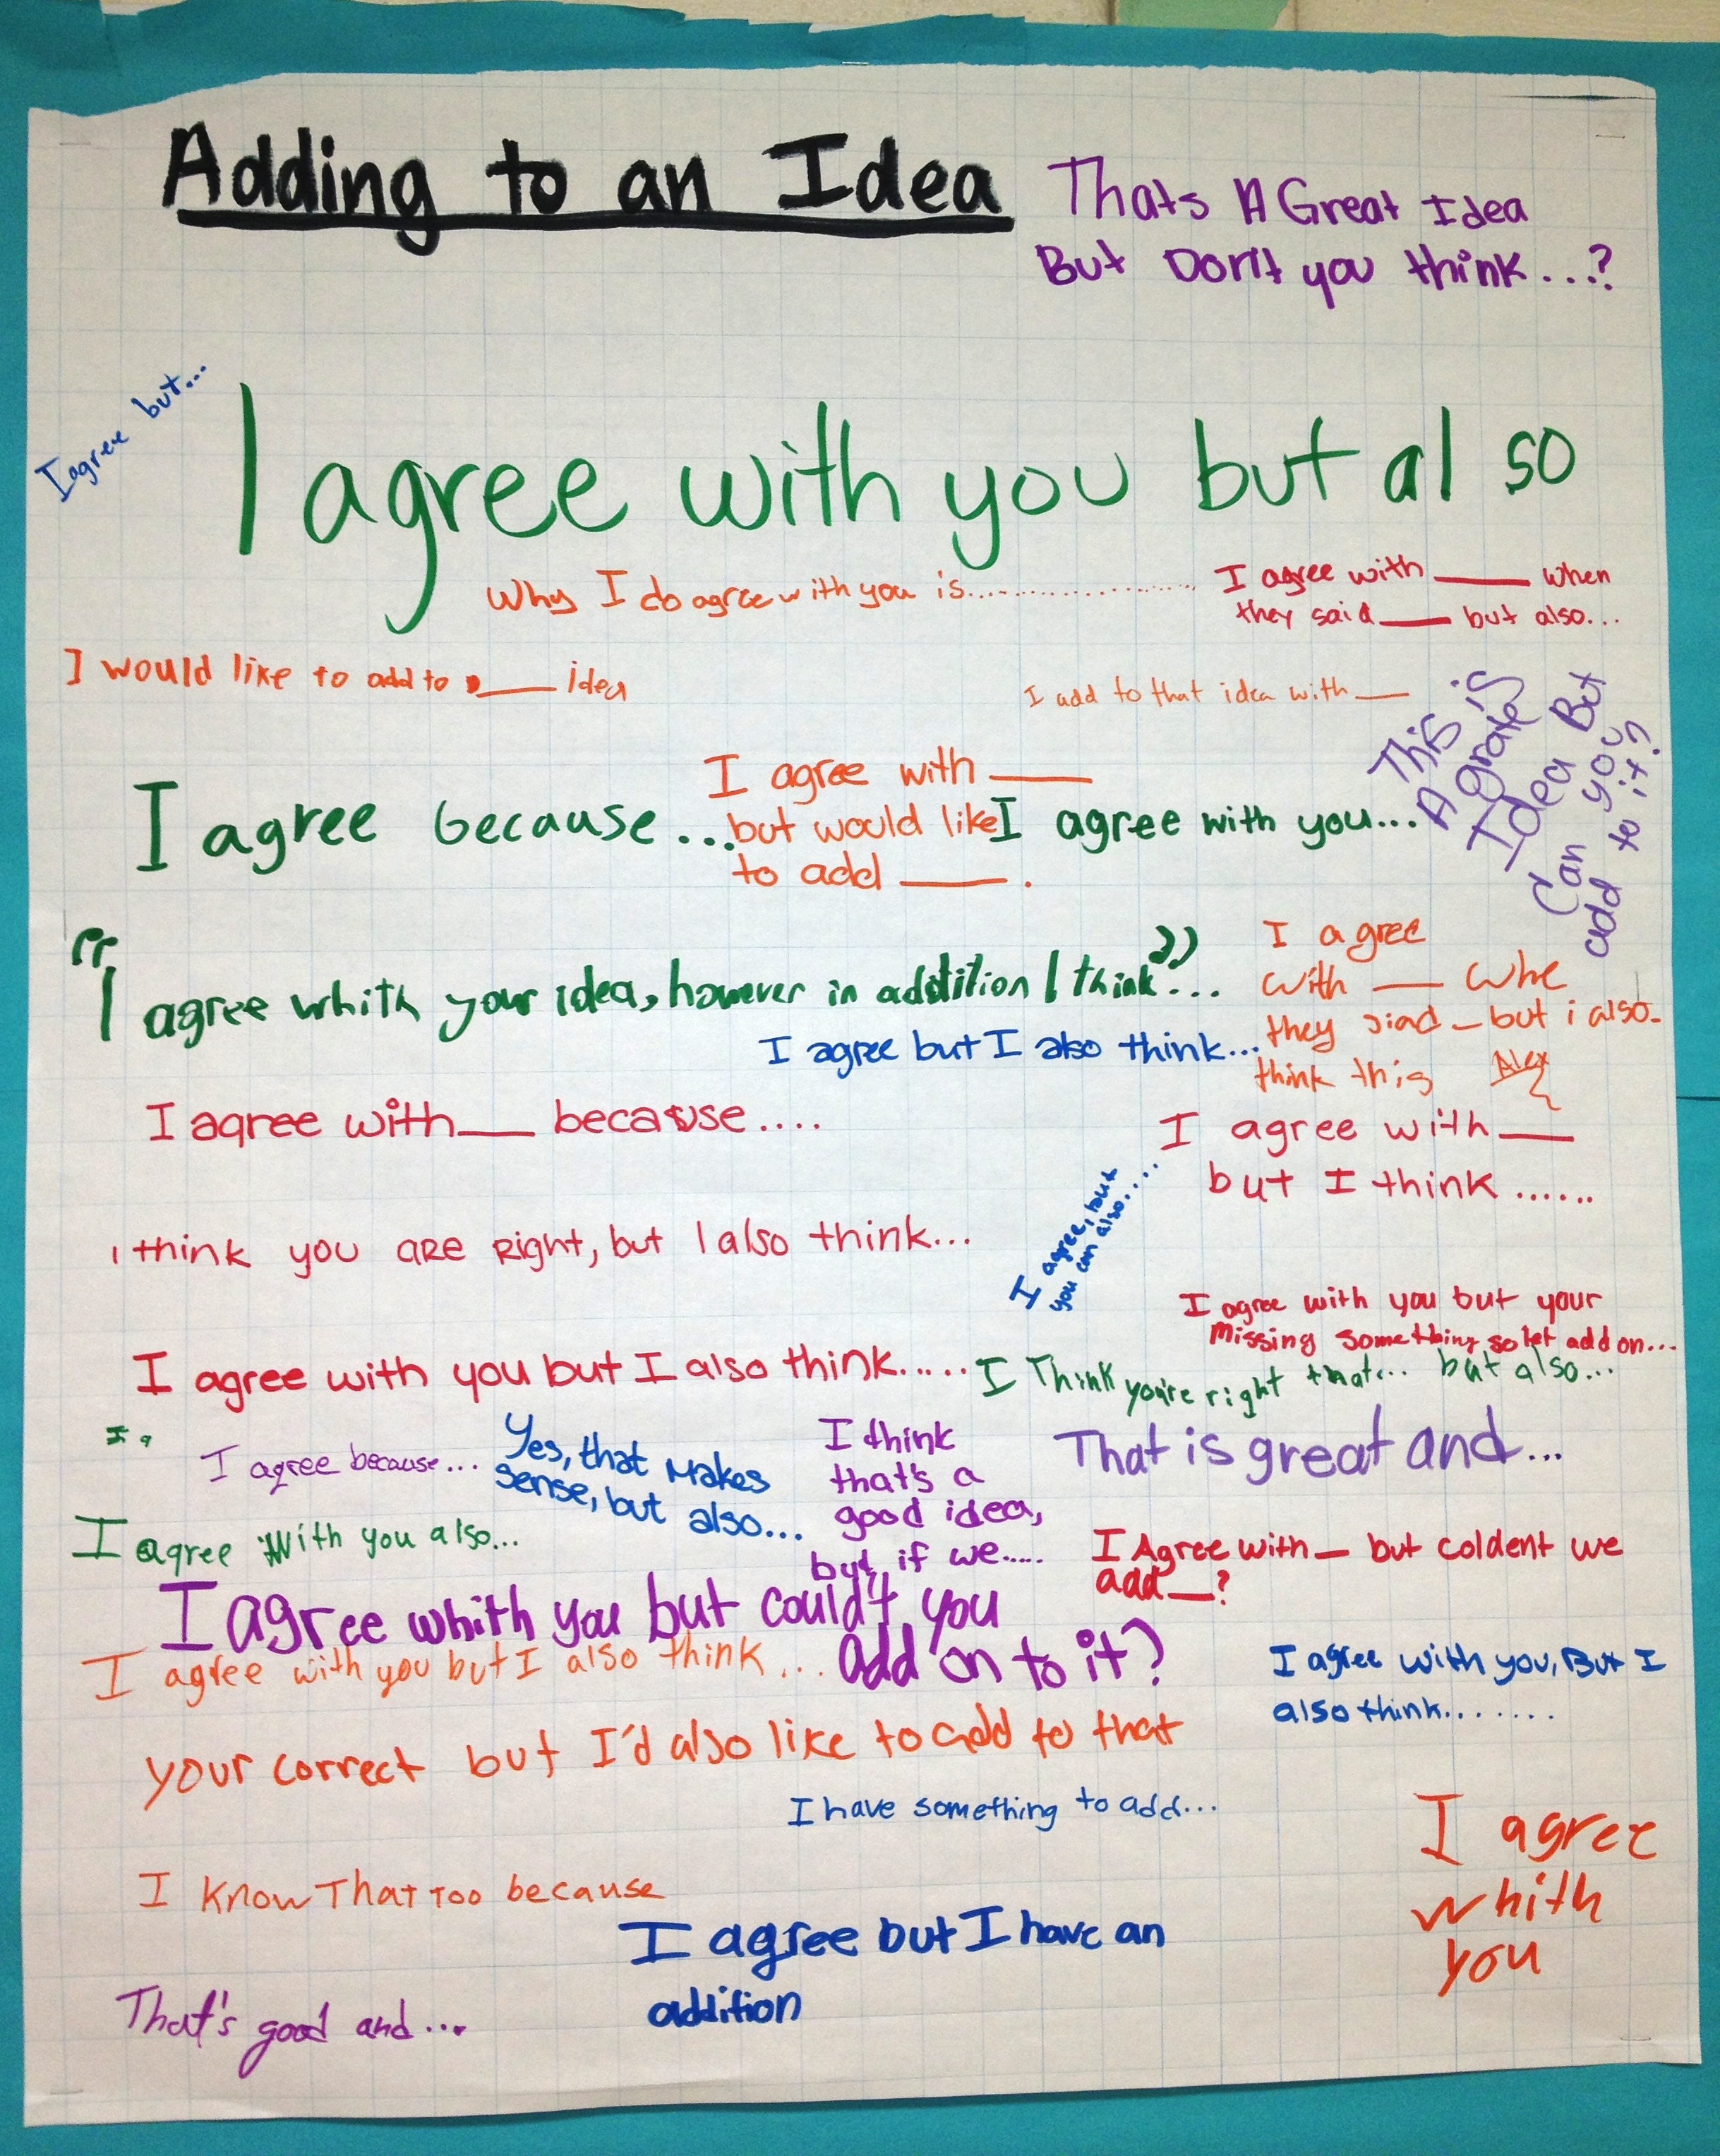 Adding to an Idea
Thats A Great Idea
But Don't you think...?
I agree but...
I agree with you but al so
Why I do agree with you is................
I agree with ____ when
they said ____ but also...
I would like to add to ____ idea
I add to that idea with ____
This is
A grate
Idea But
Can you
add to it?
I agree with ____
but would like
to add ____.
I agree because...
I agree with you...
"I agree whith your idea, however in addition I think"...
I agree
with ____ whe
they siad _ but i also
think this
Alex
I agree but I also think...
I agree with ____ because....
I agree with ____
but I think ......
I agree, but
you can also....
I think you are Right, but I also think...
I agree with you but your
missing something so let add on...
I agree with you but I also think.....
I Think you're right that... but also...
I agree because...
Yes, that Makes
sense, but also...
I think
that's a
good idea,
but if we.....
That is great and...
I agree With you also...
I Agree with _ but coldent we
add __?
I agree whith you but could't you
add on to it?
I agree with you but I also think...
I agree with you, But I
also think.......
your correct but I'd also like to add to that
I have something to add...
I agree
whith
you
I Know That Too because
I agree but I have an
addition
That's good and...